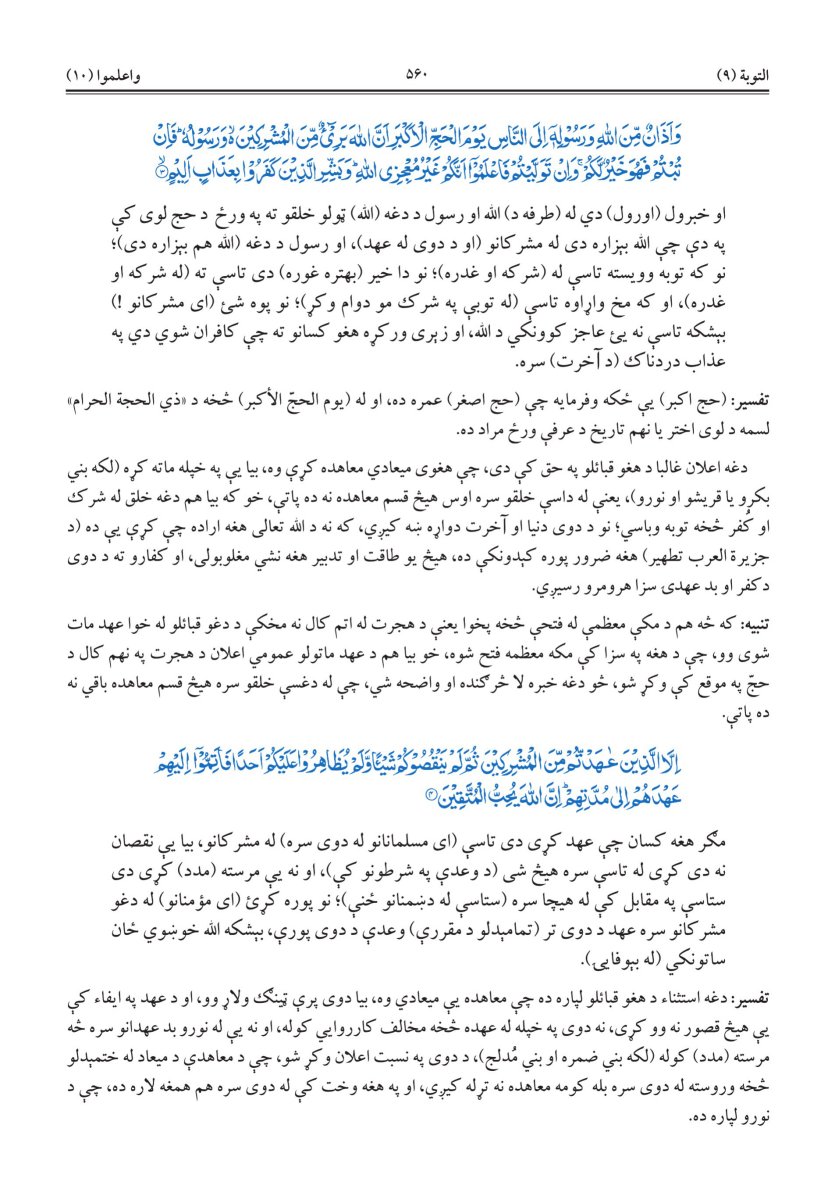 التوبة (٩)
۵۶۰
واعلموا (١٠)
وَاَذَانٌ مِّنَ اللّٰهِ وَرَسُوْلِهٖٓ اِلَى النَّاسِ يَوْمَ الْحَجِّ الْاَكْبَرِ اَنَّ اللّٰهَ بَرِیْٓءٌ مِّنَ الْمُشْرِكِيْنَ ەۙ وَرَسُوْلُهٗ ؕ فَاِنْ
تُبْتُمْ فَهُوَ خَيْرٌ لَّكُمْ ۚ وَاِنْ تَوَلَّيْتُمْ فَاعْلَمُوْٓا اَنَّكُمْ غَيْرُ مُعْجِزِی اللّٰهِ ؕ وَبَشِّرِ الَّذِيْنَ كَفَرُوْا بِعَذَابٍ اَلِيْمٍ ۙ﴿۳﴾
او خبرول (اورول) دي له (طرفه د) الله او رسول د دغه (الله) ټولو خلقو ته په ورځ د حج لوی کې
په دې چې الله بېزاره دی له مشرکانو (او د دوی له عهد)، او رسول د دغه (الله هم بېزاره دی)؛
نو که توبه وویسته تاسې له (شرکه او غدره)؛ نو دا خیر (بهتره غوره) دی تاسې ته (له شرکه او
غدره)، او که مخ واړاوه تاسې (له توبې په شرك مو دوام وکړ)؛ نو پوه شئ (ای مشرکانو !)
بېشکه تاسې نه یئ عاجز کوونکي د الله، او زېری ورکړه هغو کسانو ته چې کافران شوي دي په
عذاب دردناك (د آخرت) سره.
تفسیر: (حج اکبر) یې ځکه وفرمایه چې (حج اصغر) عمره ده، او له (یوم الحجّ الأکبر) څخه د «ذي الحجة الحرام»
لسمه د لوی اختر یا نهم تاریخ د عرفې ورځ مراد ده.
دغه اعلان غالبا د هغو قبائلو په حق کې دی، چې هغوی میعادي معاهده کړې وه، بیا یې په خپله ماته کړه (لکه بني
بکرو یا قریشو او نورو)، یعنې له داسې خلقو سره اوس هیڅ قسم معاهده نه ده پاتې، خو که بیا هم دغه خلق له شرك
او کُفر څخه توبه وباسي؛ نو د دوی دنیا او آخرت دواړه ښه کیږي، که نه د الله تعالی هغه اراده چې کړې یې ده (د
جزیرة العرب تطهیر) هغه ضرور پوره کېدونکې ده، هیڅ یو طاقت او تدبیر هغه نشي مغلوبولی، او کفارو ته د دوی
دکفر او بد عهدۍ سزا هرومرو رسیږي.
تنبیه: که څه هم د مکې معظمې له فتحې څخه پخوا یعنې د هجرت له اتم کال نه مخکې د دغو قبائلو له خوا عهد مات
شوی وو، چې د هغه په سزا کې مکه معظمه فتح شوه، خو بیا هم د عهد ماتولو عمومي اعلان د هجرت په نهم کال د
حجّ په موقع کې وکړ شو، څو دغه خبره لا څرګنده او واضحه شي، چې له دغسې خلقو سره هیڅ قسم معاهده باقي نه
ده پاتې.
اِلَّا الَّذِيْنَ عٰهَدْتُّمْ مِّنَ الْمُشْرِكِيْنَ ثُمَّ لَمْ يَنْقُصُوْكُمْ شَيْـًٔا وَّلَمْ يُظَاهِرُوْا عَلَيْكُمْ اَحَدًا فَاَتِمُّوْٓا اِلَيْهِمْ
عَهْدَهُمْ اِلٰى مُدَّتِهِمْ ؕ اِنَّ اللّٰهَ يُحِبُّ الْمُتَّقِيْنَ ﴿۴﴾
مګر هغه کسان چې عهد کړی دی تاسې (ای مسلمانانو له دوی سره) له مشرکانو، بیا یې نقصان
نه دی کړی له تاسې سره هیڅ شی (د وعدې په شرطونو کې)، او نه یې مرسته (مدد) کړی دی
ستاسې په مقابل کې له هیچا سره (ستاسې له دښمنانو ځنې)؛ نو پوره کړئ (ای مؤمنانو) له دغو
مشرکانو سره عهد د دوی تر (تمامېدلو د مقررې) وعدې د دوی پورې، بېشکه الله خوښوي ځان
ساتونکي (له بېوفایۍ).
تفسیر: دغه استثناء د هغو قبائلو لپاره ده چې معاهده یې میعادي وه، بیا دوی پرې ټینګ ولاړ وو، او د عهد په ایفاء کې
یې هیڅ قصور نه وو کړی، نه دوی په خپله له عهده څخه مخالف کارروایي کوله، او نه یې له نورو بد عهدانو سره څه
مرسته (مدد) کوله (لکه بني ضمره او بني مُدلج)، د دوی په نسبت اعلان وکړ شو، چې د معاهدې د میعاد له ختمېدلو
څخه وروسته له دوی سره بله کومه معاهده نه تړله کیږي، او په هغه وخت کې له دوی سره هم همغه لاره ده، چې د
نورو لپاره ده.